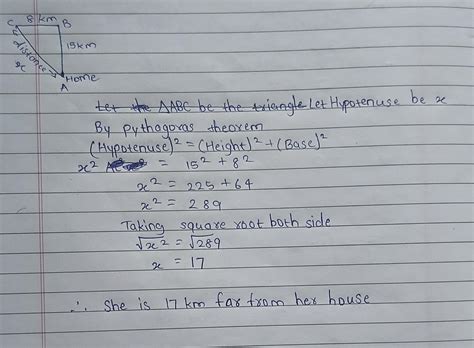 C 8 km B
15km
distance
x
Home
A
Let the ΔABC be the triangle Let Hypotenuse be x
By pythagoras theorem
(Hypotenuse)² = (Height)² + (Base)²
x² = 15² + 8²
x² = 225 + 64
x² = 289
Taking square root both side
√x² = √289
x = 17
∴ She is 17 km far from her house